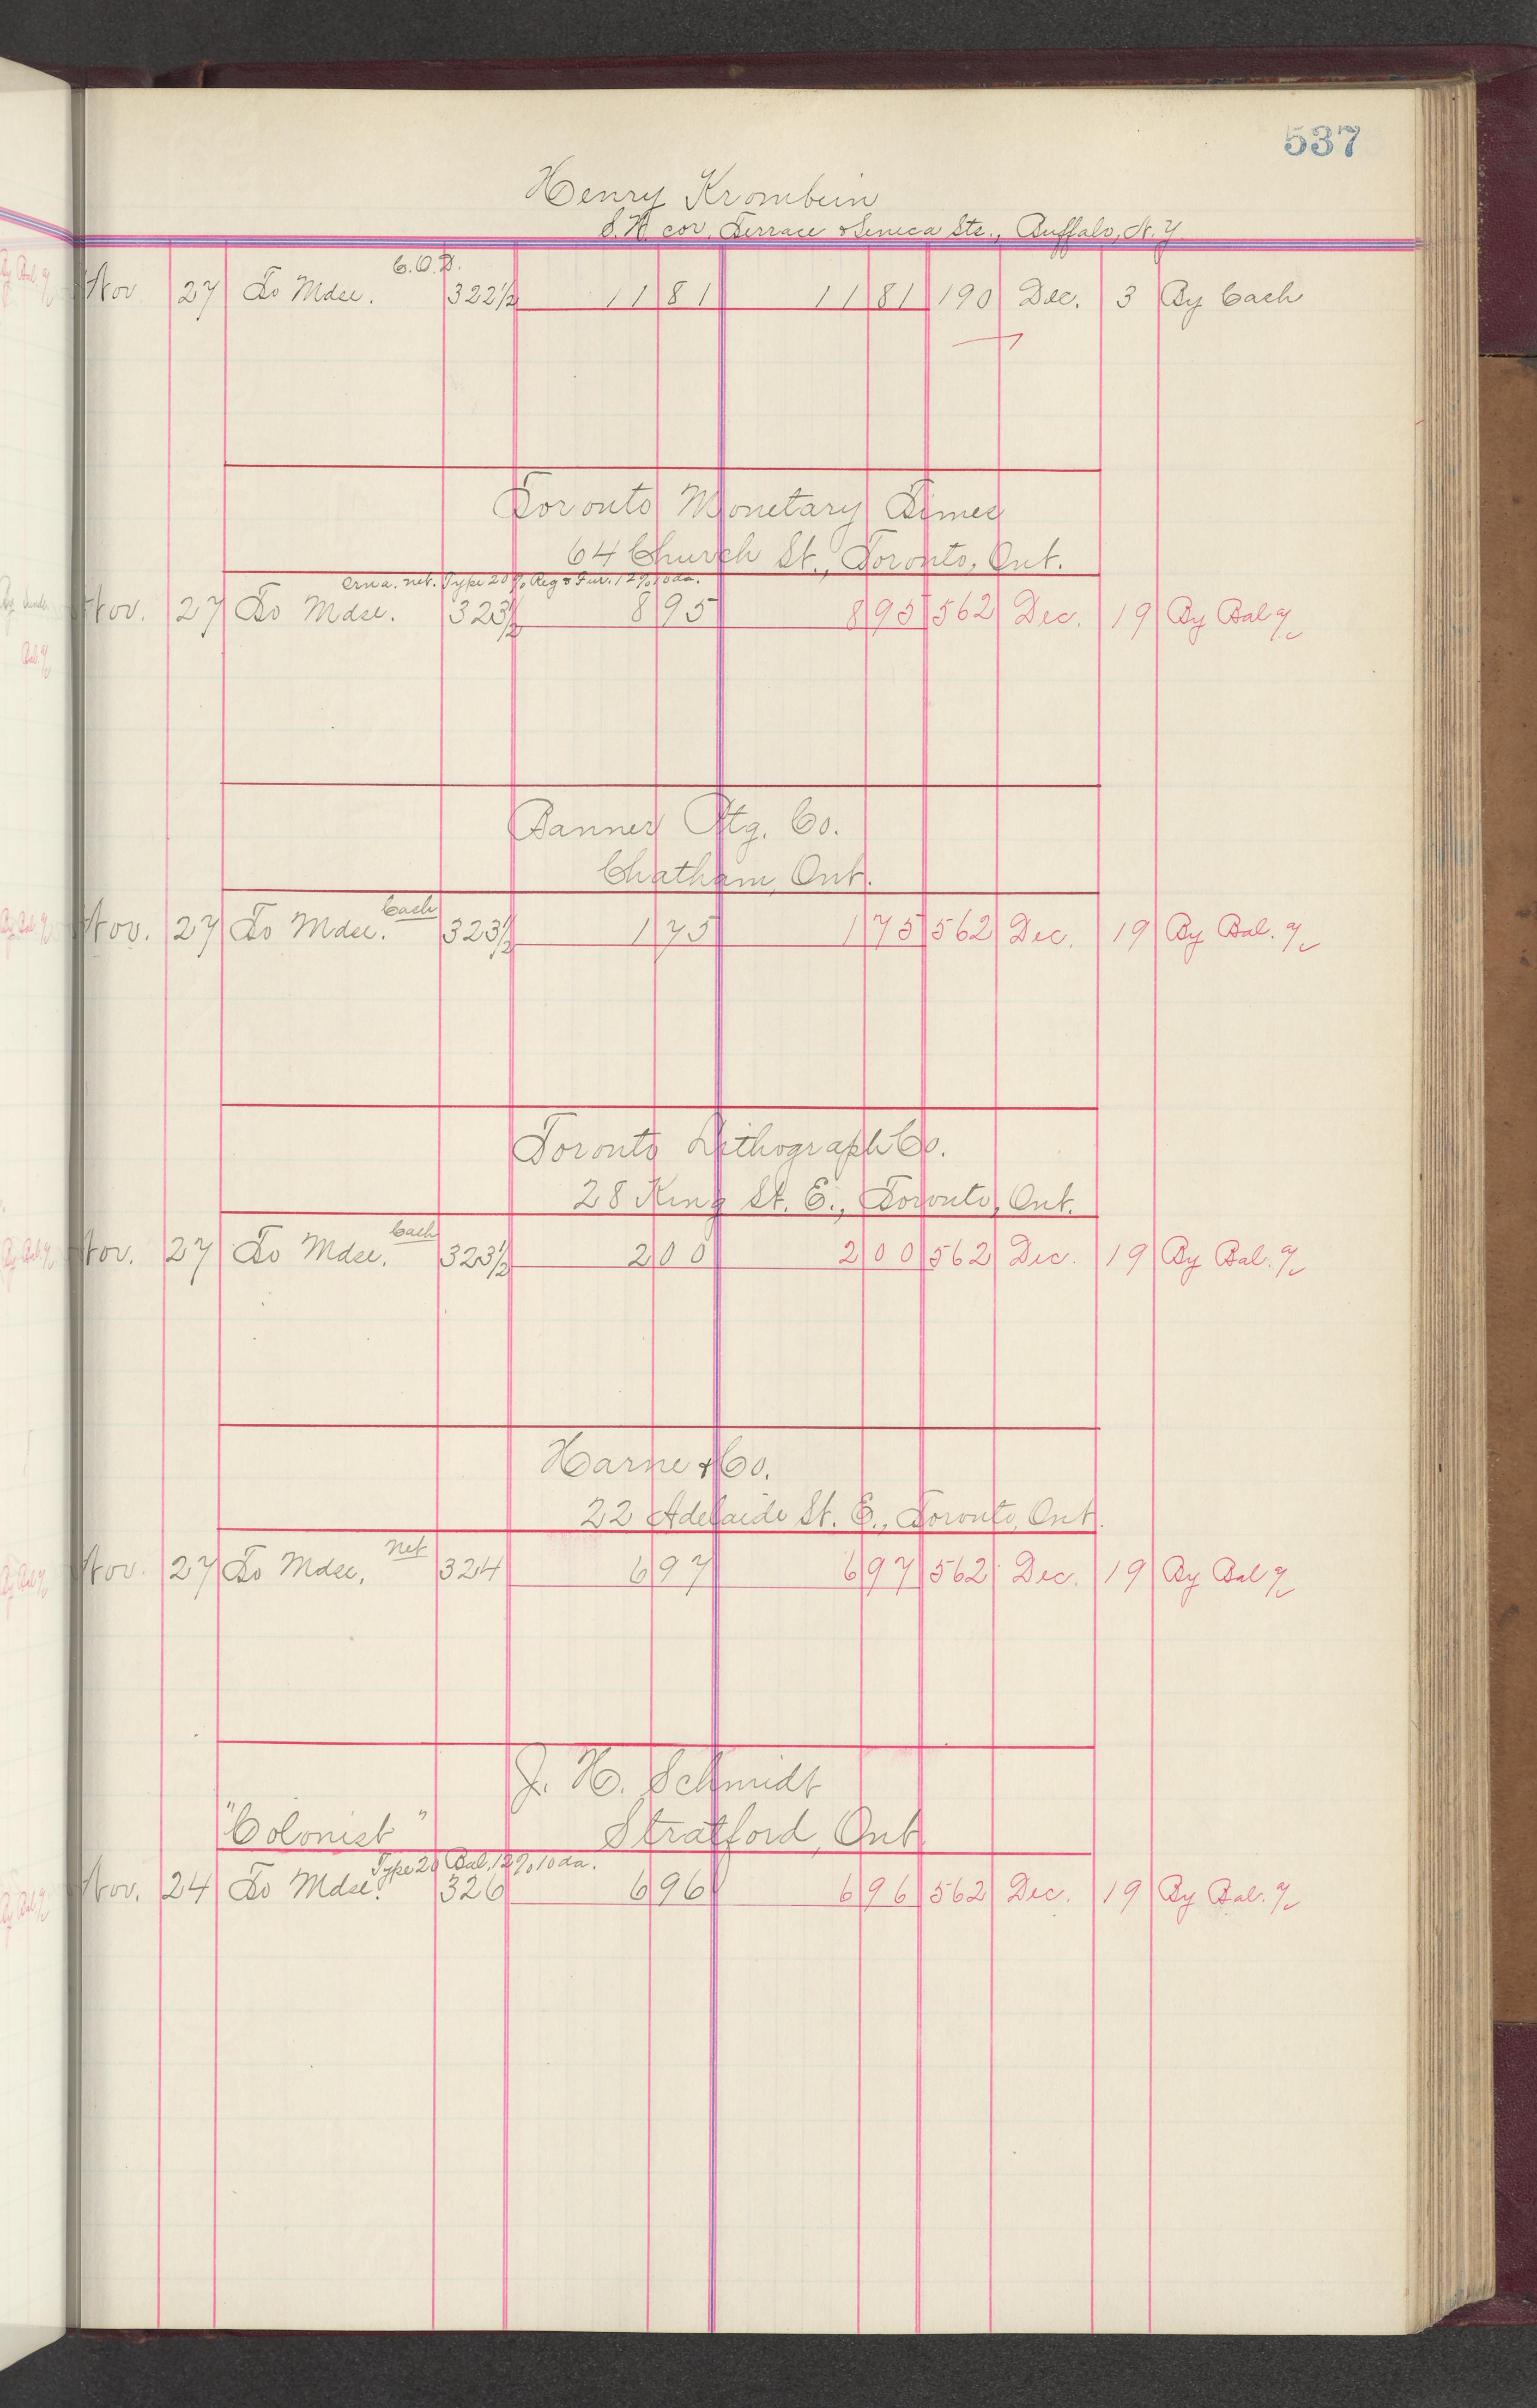 537
Henry Krombein
S.W. cor. Terrace & Seneca Sts., Buffalo, N.Y.
C.O.D.
Nov 27 To Mdse. 322 1/2 11 81 11 81 190 Dec. 3 By Cash
Toronto Monetary Times
64 Church St., Toronto, Ont.
Orna. net. Type 20%, Reg & Fur. 12%, 10 da.
Nov. 27 To Mdse. 323 1/2 8 95 8 95 562 Dec. 19 By Bal a/c
Banner Ptg. Co.
Chatham, Ont.
Cash
Nov. 27 To Mdse. 323 1/2 1 75 1 75 562 Dec. 19 By Bal. a/c
Toronto Lithograph Co.
28 King St. E., Toronto, Ont.
Cash
Nov. 27 To Mdse. 323 1/2 2 00 2 00 562 Dec. 19 By Bal. a/c
Harne & Co.
22 Adelaide St. E., Toronto, Ont.
net
Nov. 27 To Mdse. 324 6 97 6 97 562 Dec. 19 By Bal a/c
J. H. Schmidt
"Colonist" Stratford, Ont.
Type 20 Bal. 12%, 10 da.
Nov. 24 To Mdse. 326 6 96 6 96 562 Dec. 19 By Bal. a/c